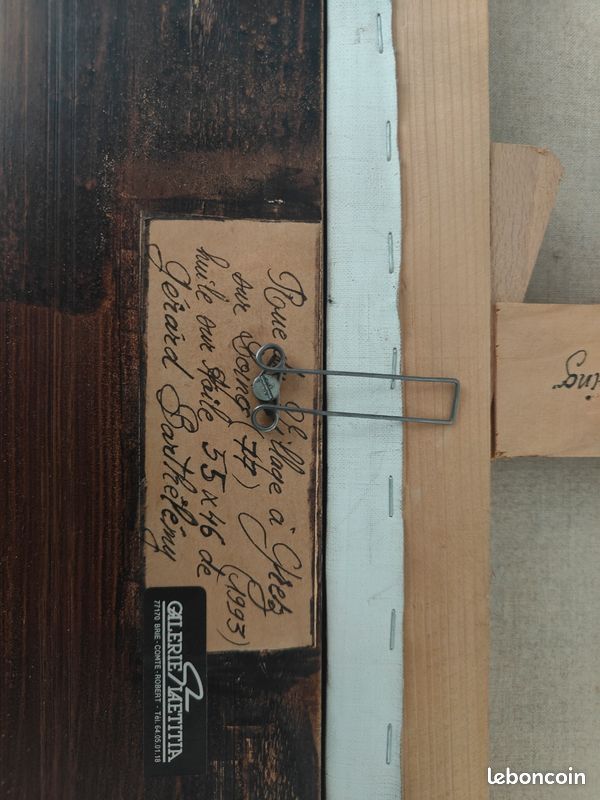 Rue Village à Grez
sur Loing 77) (1993)
huile sur toile 55x46 de
Gérard Barthélémy
GALERIE LAETITIA
77170 BRIE-COMTE-ROBERT - Tél. 64.05.01.18
ing
leboncoin